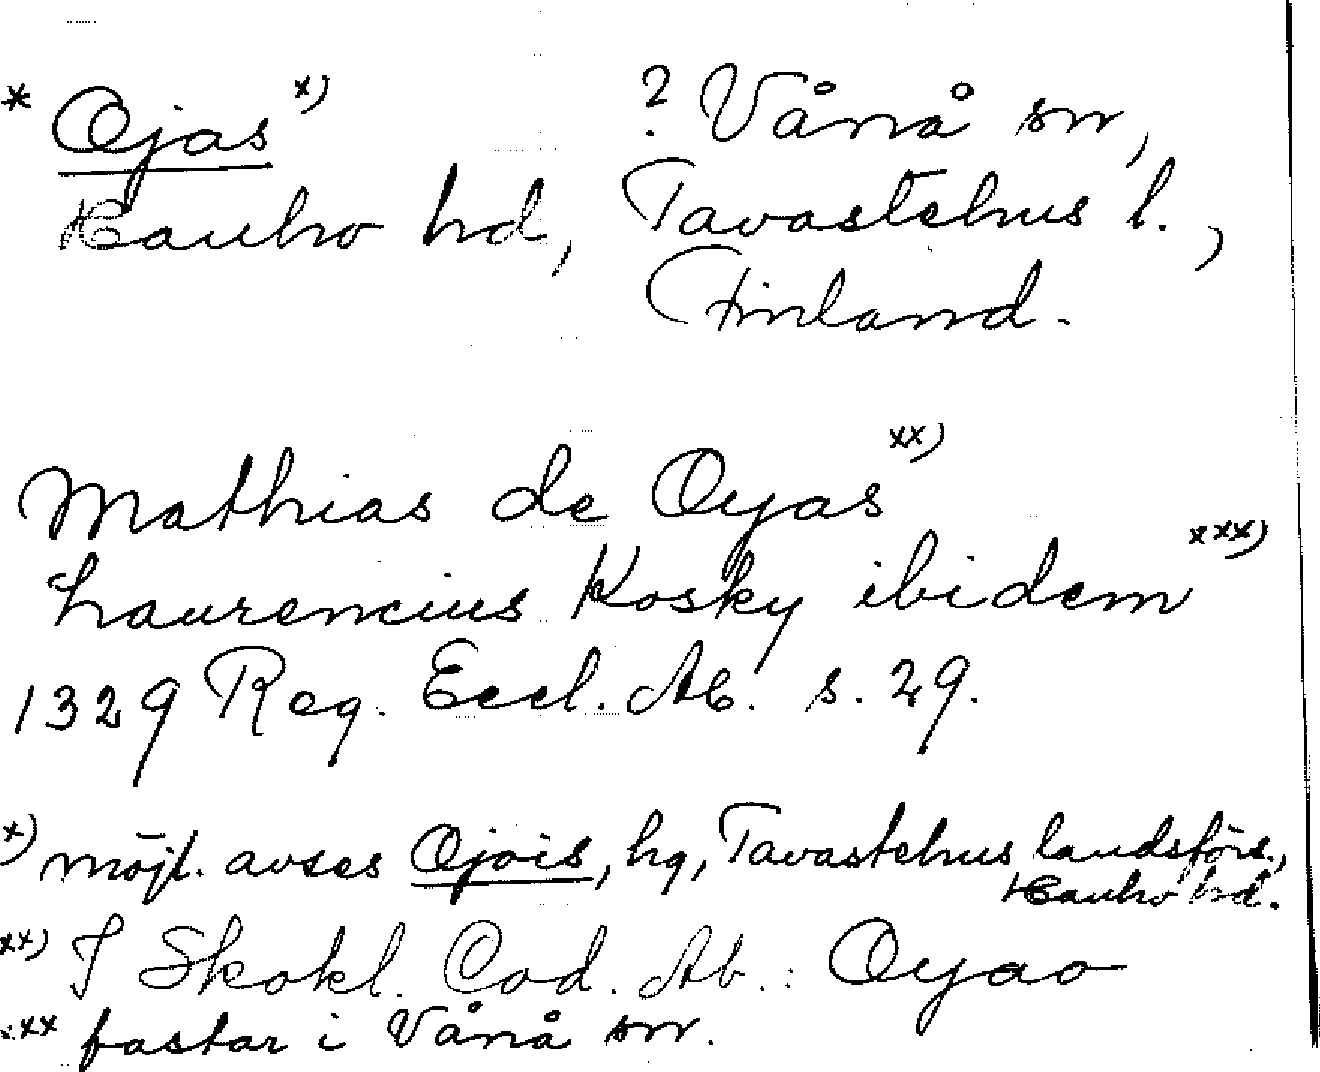 * Ojas x) ? Vånå sn,
Hauho hd, Tavastehus l.,
Finland.
Mathias de Oyas xx)
Laurencius Kosky ibidem xxx)
1329 Reg. Eccl. Ab. s. 29.
x) möjl. avses Ojois, hg, Tavastehus landsförs.,
Hauho hd.
xx) I Skokl. Cod. Ab.: Oyao
xxx fastar i Vånå sn.